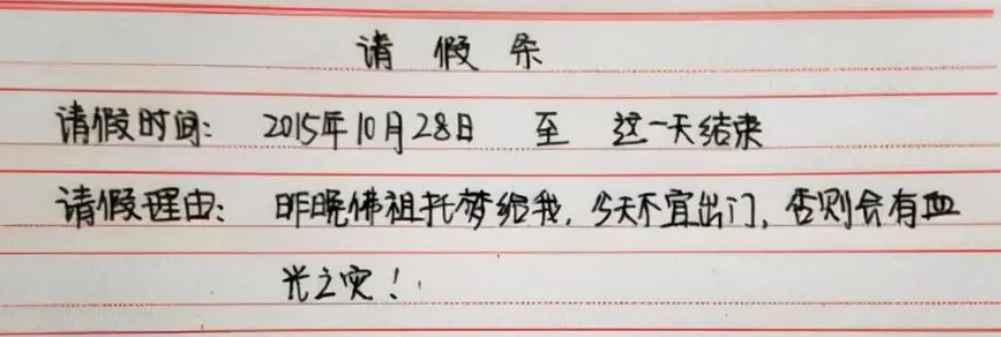 请假条
请假时间： 2015年10月28日 至 这一天结束
请假理由： 昨晚佛祖托梦给我，今天不宜出门，否则会有血
光之灾！